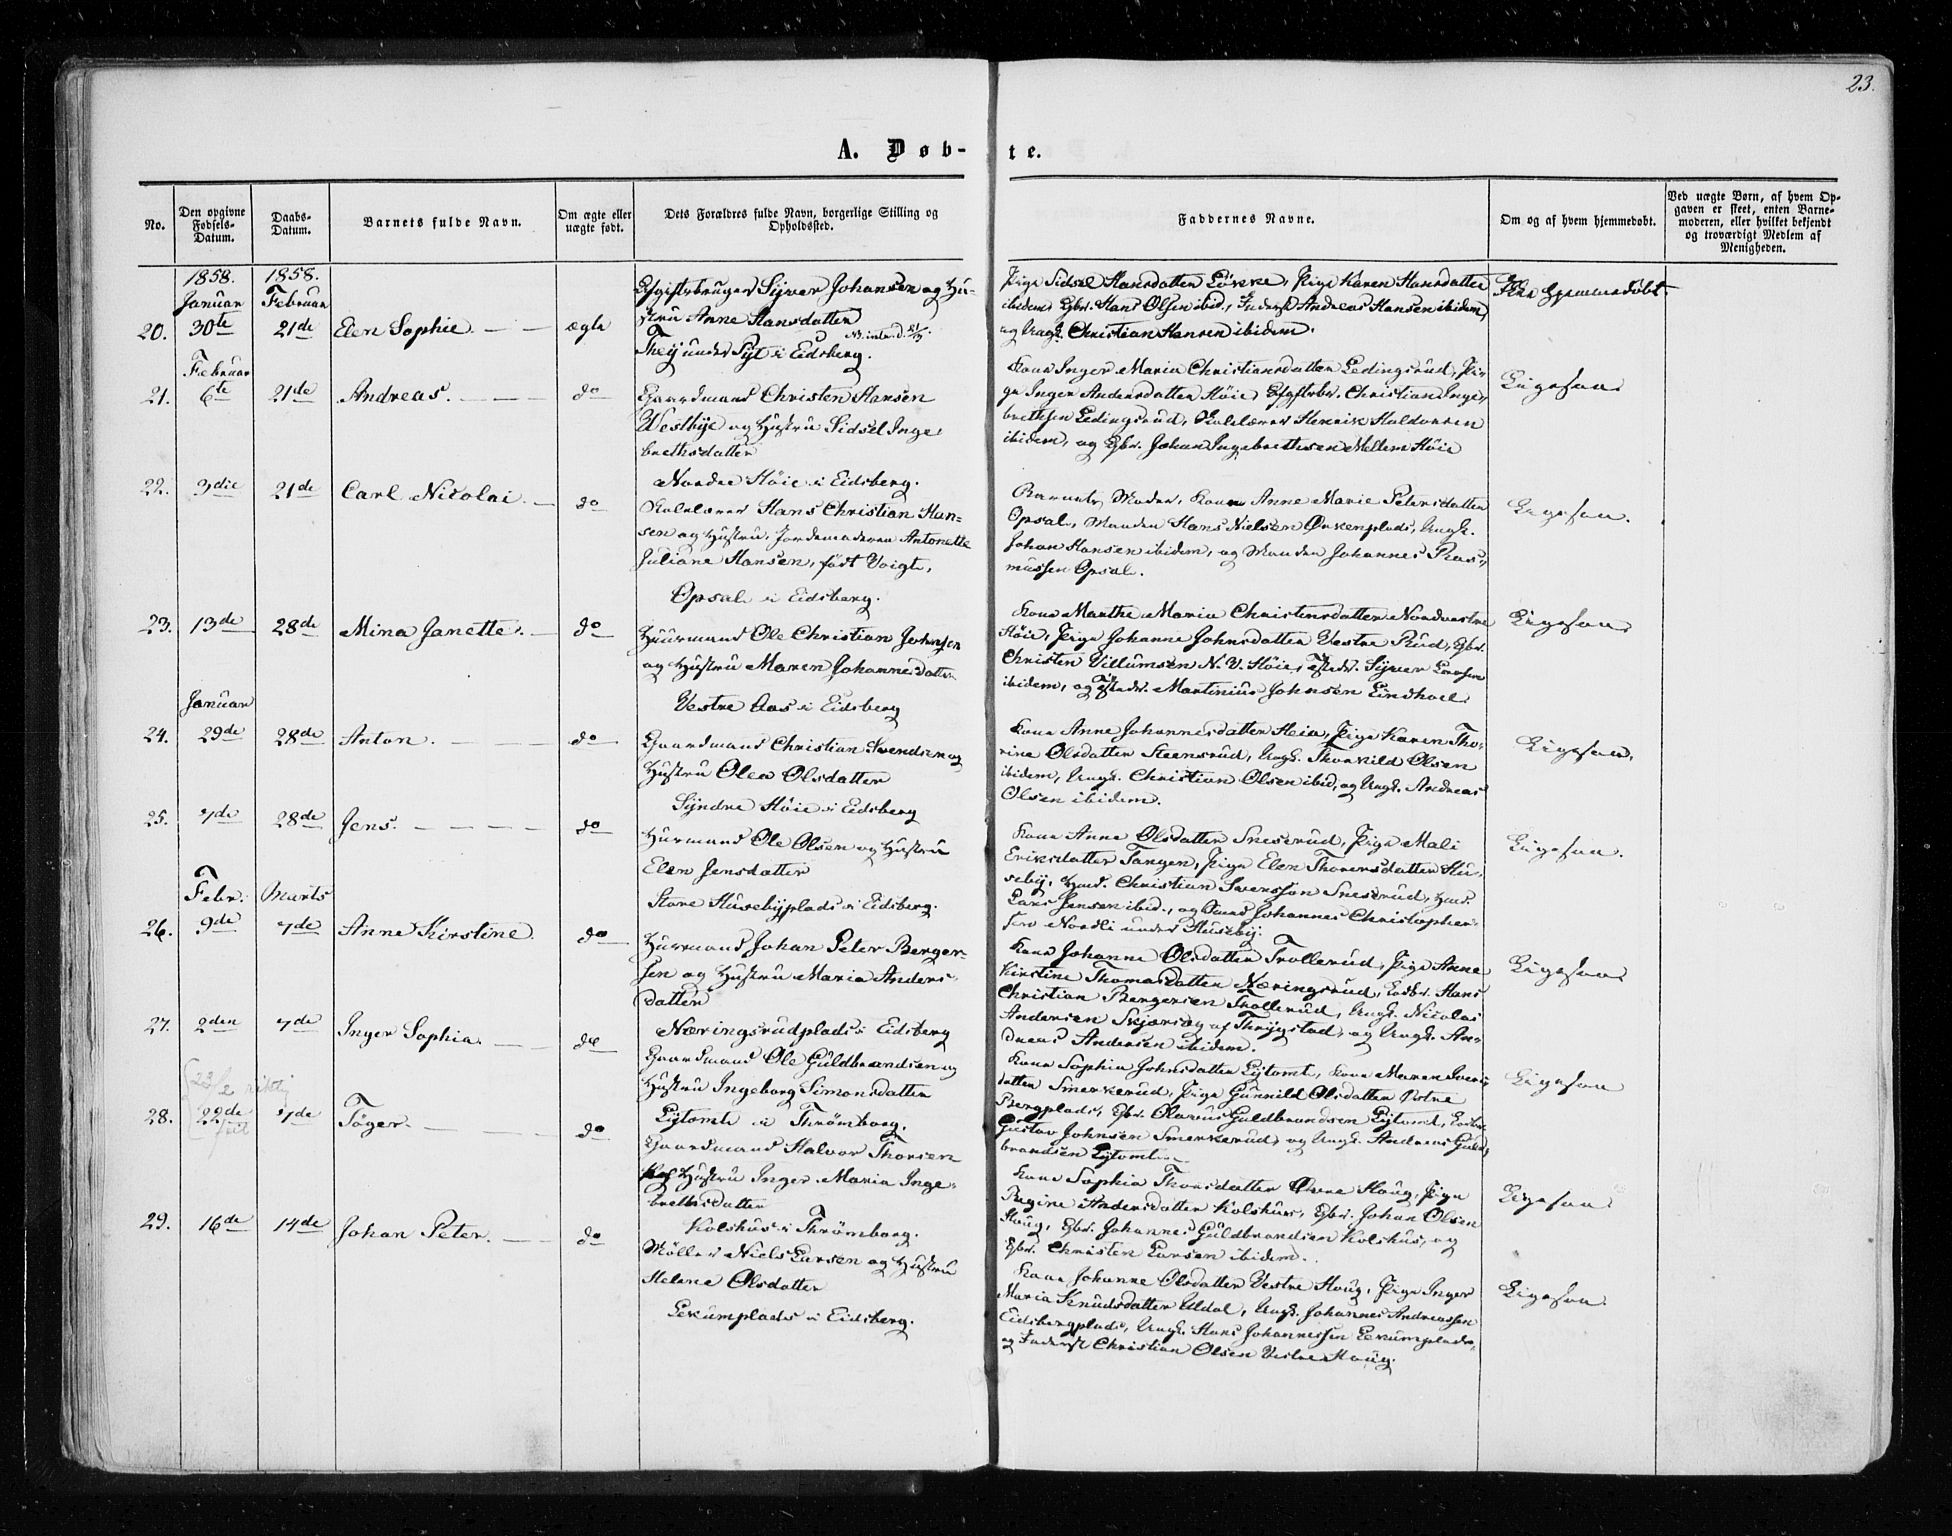 23.
A. Døb-
te.
No.
Den opgivne Fødsels-Datum.
Daabs-Datum.
Barnets fulde Navn.
Om ægte eller uægte født.
Dets Forældres fulde Navn, borgerlige Stilling og Opholdssted.
Faddernes Navne.
Om og af hvem hjemmedøbt.
Ved uægte Børn, af hvem Op-
gaven er skeet, enten Barne-
moderen, eller hvilket bekjendt
og troværdigt Medlem af
Menigheden.
1858. 1858.
Januar Februar
20. 30te 21de Elen Sophie. ægte
Johansen og Hu-
stru Anne Hansdatter
under i Eidsberg.
Pige Sidsel Hansdatter Løkke, Pige Karen Hansdatter
ibidem, Gbr. Hans Olsen ibid., Andreas Hansen ibidem,
og Ungk. Christian Hansen ibidem.
Ikke hjemmedøbt
Februar
21. 6te 21de Andreas. do
Gaardmand Christen Hansen
Westbye og Hustru Sidsel Inge-
brethsdatter
Nordre Høie i Eidsberg.
Kone Inger Maria Christiansdatter Ledingsrud, Pi-
ge Inger Andersdatter Høie, Christian Inge-
brethsen Ledingsrud, Skolelærer Henrik Haldorsen
ibidem, og Gbr. Johan Ingebrethsen Mellem Høie
Ligesaa
22. 3die 21de Carl Nicolai. do
Skolelærer Hans Christian Han-
sen og Hustru, Jordemoderen Antonette
Juliane Hansen, født Voigt,
Opsal i Eidsberg.
Barnets Moder, Kone Anne Marie Petersdatter
Opsal, Manden Hans Nielsen Ørkenplads, Ungk.
Johan Hansen ibidem, og Manden Johannes Ras-
mussen Opsal.
Ligesaa.
23. 13de 28de Mina Janette. do
Huusmand Ole Christian Johnsen
og Hustru Maren Johannesdatter
Vestre Aas i Eidsberg
Kone Marthe Maria Christensdatter Nordvestre
Høie, Pige Johanne Johnsdatter Vestre Rud, Gbr.
Christen Villumsen N. V. Høie, Syver Larsen
ibidem, og Martinius Johnsen Lindhoel
Ligesaa
Januar
24. 29de 28de Anton. do
Gaardmand Christian Svendsen og
Hustru Olea Olsdatter
Syndre Høie i Eidsberg
Kone Anne Johannesdatter Heia, Pige Karen Tho-
rine Olsdatter Steensrud, Ungk. Thorkild Olsen
ibidem, Ungk. Christian Olsen ibid, og Ungk. Andreas
Olsen ibidem.
Ligesaa.
25. 7de 28de Jens. do
Huusmand Ole Olsen og Hustru
Elen Jensdatter
Store Husebyplads i Eidsberg.
Kone Anne Olsdatter Sneserud, Pige Mali
Eriksdatter Tangen, Pige Elen Thoresdatter Hu-
seby, Husm. Christian Svensson Sneserud, Husm.
Lars Jensen ibid., og Johannes Christopher-
sen Nordli under Huseby.
Ligesaa.
Febr. Marts
26. 9de 7de Anne Kirstine. do
Huusmand Johan Peter Berger-
sen og Hustru Maria Anders-
datter
Næringsrudplads i Eidsberg
Kone Johanne Olsdatter Trollerud, Pige Anne
Kirstine Thomasdatter Næringsrud, Hans
Christian Bergersen Trollerud, Ungk. Nicolai
Andersen Skjørsag af Thrygstad, og Ungk. An-
dreas Andersen ibidem.
Ligesaa
27. 2den 7de Inger Sophia. do
Gaardmand Ole Guldbrandsen og
Hustru Ingeborg Simonsdatter
Lytomt i Thrømborg.
Kone Sophia Johnsdatter Lytomt, Kone Maren Ivers-
datter Smerkerud, Pige Gunnild Olsdatter
Bergplads, Gbr. Olavus Guldbrandsen Lytomt,
Gustav Johnsen Smerkerud, og Ungk. Andreas Guld-
brandsen Lytomt.
Ligesaa
28. 22de 7de Töger. do
Gaardmand Halvor Thorsen
og Hustru Inger Maria Inge-
brethsdatter
Kolshus i Thrømborg.
Kone Sophia Thorsdatter Øvre Haug, Pige
Regine Andersdatter Kolshus, Gbr. Johan Olsen
Haug, Gbr. Johannes Guldbrandsen Kolshus, og
Gbr. Christen Larsen ibidem.
Ligesaa
29. 16de 14de Johan Peter. do
Møller Niels Larsen og Hustru
Helene Olsdatter
Lekumplads i Eidsberg.
Kone Johanne Olsdatter Vestre Haug, Pige Inger
Maria Knudsdatter Udal, Ungk. Johannes Andreassen
Eidsbergplads, Ungk. Hans Johannessen Lekumplads,
og Christian Olsen Vestre Haug.
Ligesaa.